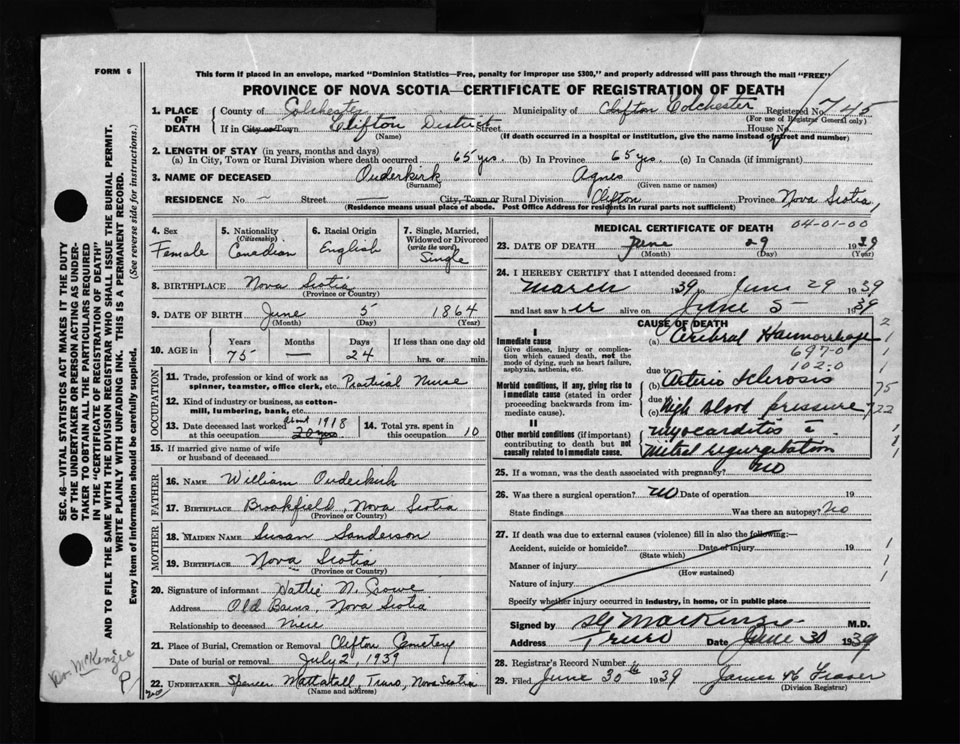 FORM 6
This form if placed in an envelope, marked "Dominion Statistics—Free, penalty for improper use $300," and properly addressed will pass through the mail "FREE"
PROVINCE OF NOVA SCOTIA—CERTIFICATE OF REGISTRATION OF DEATH
1. PLACE OF DEATH
County of Colchester Municipality of Clifton Colchester Registered No. 745
(For use of Registrar General only)
If in City or Town Clifton District Street House No.
(Name) (If death occurred in a hospital or institution, give the name instead of street and number)
2. LENGTH OF STAY (in years, months and days)
(a) In City, Town or Rural Division where death occurred 65 yrs. (b) In Province 65 yrs. (c) In Canada (if immigrant)
3. NAME OF DECEASED Ouderkirk Agnes
(Surname) (Given name or names)
RESIDENCE No. — Street — City, Town or Rural Division Clifton Province Nova Scotia
(Residence means usual place of abode. Post Office Address for residents in rural parts not sufficient)
4. Sex Female
5. Nationality (Citizenship) Canadian
6. Racial Origin English
7. Single, Married, Widowed or Divorced (write the word) Single
8. BIRTHPLACE Nova Scotia
(Province or Country)
9. DATE OF BIRTH June 5 1864
(Month) (Day) (Year)
10. AGE in Years Months Days If less than one day old
75 — 24 hrs. or min.
OCCUPATION
11. Trade, profession or kind of work as spinner, teamster, office clerk, etc. Practical Nurse
12. Kind of industry or business, as cotton-mill, lumbering, bank, etc.
13. Date deceased last worked at this occupation about 1918 20 yrs
14. Total yrs. spent in this occupation 10
15. If married give name of wife or husband of deceased
FATHER
16. NAME William Ouderkirk
17. BIRTHPLACE Brookfield, Nova Scotia
(Province or Country)
MOTHER
18. MAIDEN NAME Susan Sanderson
19. BIRTHPLACE Nova Scotia
(Province or Country)
20. Signature of informant Hattie N. Crowe
Address Old Barns, Nova Scotia
Relationship to deceased niece
21. Place of Burial, Cremation or Removal Clifton Cemetery
Date of burial or removal July 2, 1939
22. UNDERTAKER Spencer Mattatall, Truro, Nova Scotia
(Name and address)
MEDICAL CERTIFICATE OF DEATH
04-01-00
23. DATE OF DEATH June 29 1939
(Month) (Day) (Year)
24. I HEREBY CERTIFY that I attended deceased from:
March 1939 to June 29 1939
and last saw her alive on June 5 1939
CAUSE OF DEATH
I
Immediate cause
Give disease, injury or complication which caused death, not the mode of dying, such as heart failure, asphyxia, asthenia, etc.
(a) Cerebral Haemorrhage
697-0
102-0
due to
Morbid conditions, if any, giving rise to immediate cause (stated in order proceeding backwards from immediate cause).
(b) Arterio Sclerosis
due to
(c) High Blood pressure
II
Other morbid conditions (if important) contributing to death but not causally related to immediate cause.
Myocarditis c̄
Mitral regurgitation
25. If a woman, was the death associated with pregnancy? No
26. Was there a surgical operation? No Date of operation 19
State findings Was there an autopsy? No
27. If death was due to external causes (violence) fill in also the following:—
Accident, suicide or homicide? Date of injury 19
(State which)
Manner of injury
(How sustained)
Nature of injury
Specify whether injury occurred in industry, in home, or in public place
Signed by MacKenzie M.D.
Address Truro Date June 30 1939
28. Registrar's Record Number
29. Filed June 30th 1939 James H Fraser
(Division Registrar)
SEC. 46—VITAL STATISTICS ACT MAKES IT THE DUTY
OF THE UNDERTAKER OR PERSON ACTING AS UNDER-
TAKER TO OBTAIN ALL THE PARTICULARS REQUIRED
IN THE "CERTIFICATE OF REGISTRATION OF DEATH"
AND TO FILE THE SAME WITH THE DIVISION REGISTRAR WHO SHALL ISSUE THE BURIAL PERMIT.
WRITE PLAINLY WITH UNFADING INK. THIS IS A PERMANENT RECORD.
Every item of information should be carefully supplied. (See reverse side for instructions.)
Dr. McKenzie